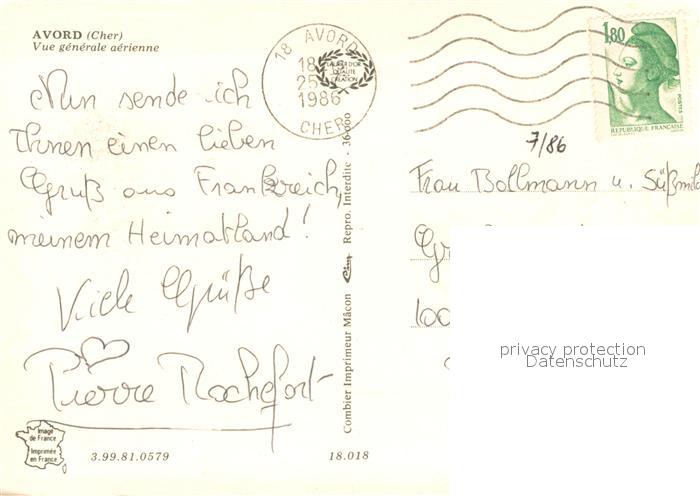 AVORD (Cher)
Vue générale aérienne
18 AVORD
18
25
1986
CHER
1,80
POSTES
REPUBLIQUE FRANÇAISE
7/86
Nun sende ich
Ihnen einen lieben
Gruß aus Frankreich,
meinem Heimatland!
Viele Grüße
Pierre Rochefort
Frau Bollmann u.
100
privacy protection
Datenschutz
Combier Imprimeur Mâcon Cim Repro. Interdite - 36-000
Image
de France
Imprimée
en France
3.99.81.0579
18.018